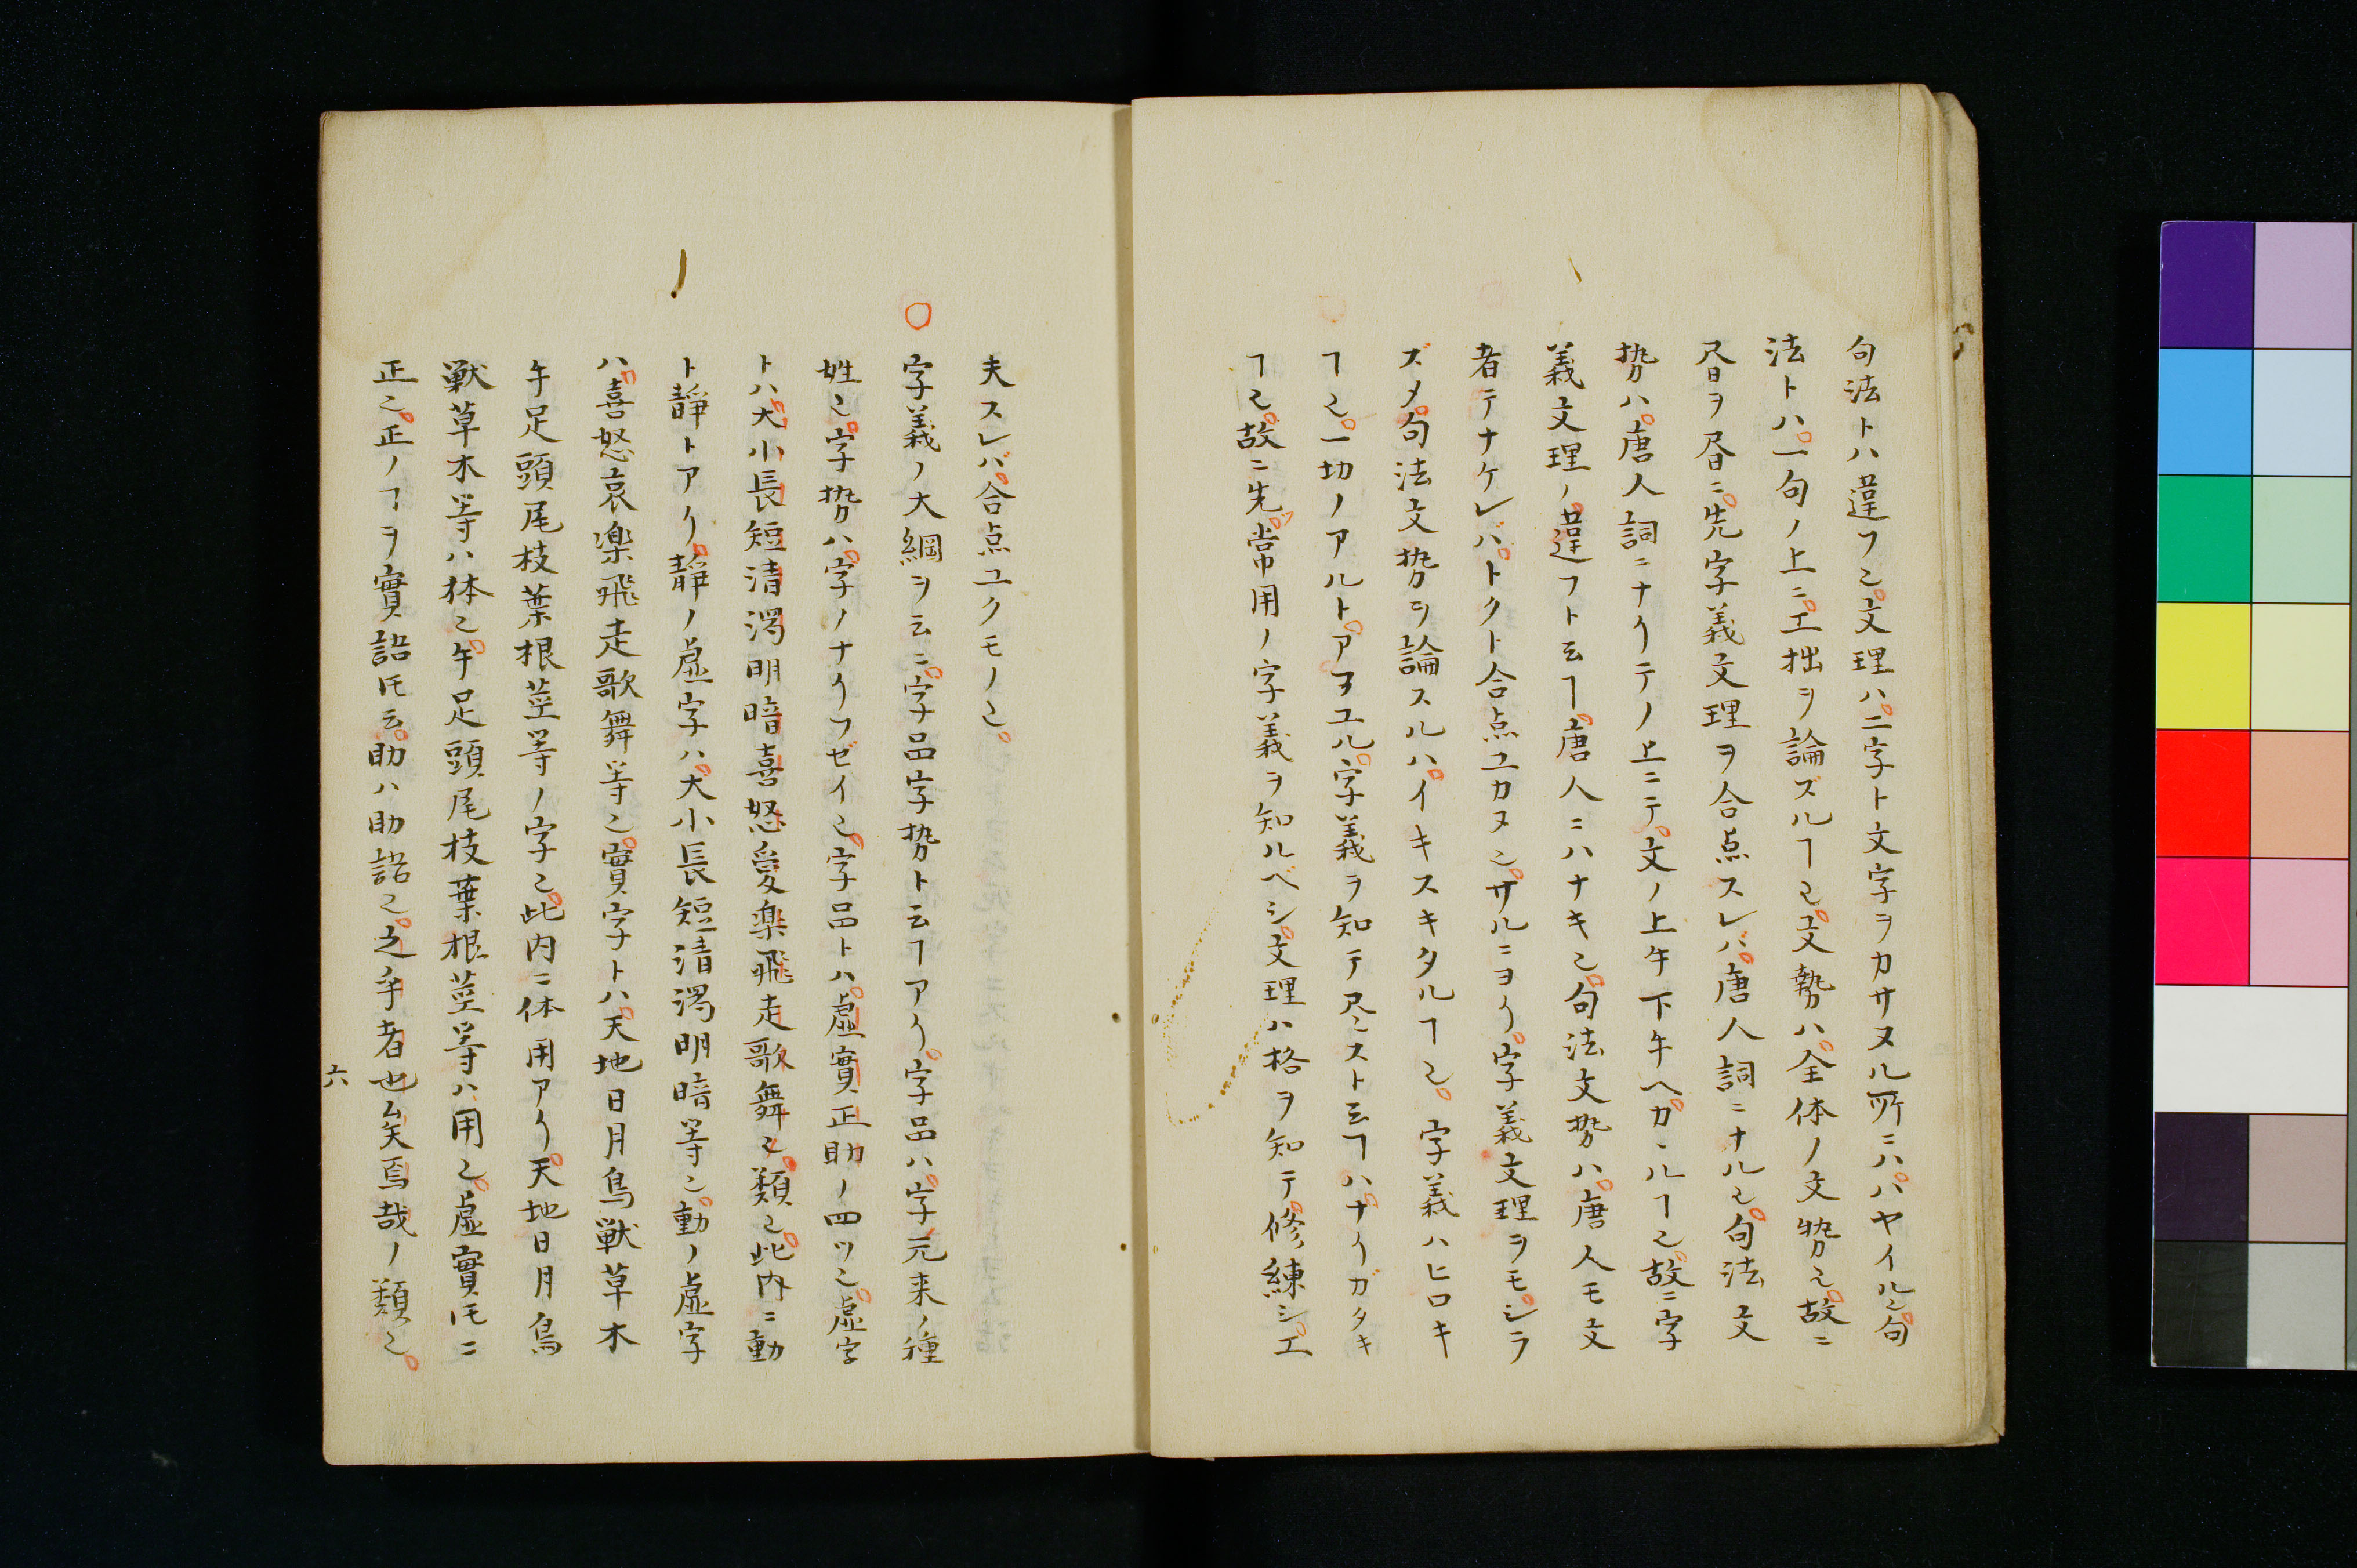 句法トハ違フ也。文理ハ。二字ト文字ヲカサヌル所ニハ。ハヤイル也。句
法トハ。一句ノ上ニ。工拙ヲ論ズルヿ也。文勢ハ。全体ノ文勢也。故ニ
ヲ
ニ。先字義文理ヲ合点スレバ。唐人詞ニナル也。句法文
勢ハ。唐人詞ニナリテノ上ニテ。文ノ上手下手ヘカヽルヿ也。故ニ字
義文理ノ。違フト云ヿ。唐人ニハナキ也。句法文勢ハ。唐人モ文
者テナケレバ。トクト合点ユカヌ也。サルニヨリ。字義文理ヲモ。シラ
ズメ。句法文勢ヲ論スルハ。イキスキタルヿ也。字義ハヒロキ
ヿ也。一切ノアルト。アヲユル。字義ヲ知テ尽ニスト云ヿハ。ナリガタキ
ヿ也。故ニ先。常用ノ字義ヲ知ルベシ。文理ハ格ヲ知テ。修練シ。工
夫スレバ。合点ユクモノ也。
○字義ノ大綱ヲ云ニ。字品字勢ト云ヿアリ。字品ハ。字元来ノ種
姓也。字勢ハ。字ノナリフゼイ也。字品トハ。虚實正助ノ四ツ也。虚字
トハ。大小長短清濁明暗喜怒愛楽飛走歌舞之類也。此内ニ動
ト静トアリ。静ノ虚字ハ。大小長短清濁明暗等也。動ノ虚字
ハ。喜怒哀楽飛走歌舞等也。實字トハ。天地日月鳥獣草木
手足頭尾枝葉根莖等ノ字也。此内ニ体用アリ。天地日月鳥
獣草木等ハ体也。手足頭尾枝葉根莖等ハ用也。虚實𪜈ニ
正也。正ノヿヲ實語𪜈云。助ハ助語也。之乎者也矣焉哉ノ類也。
六